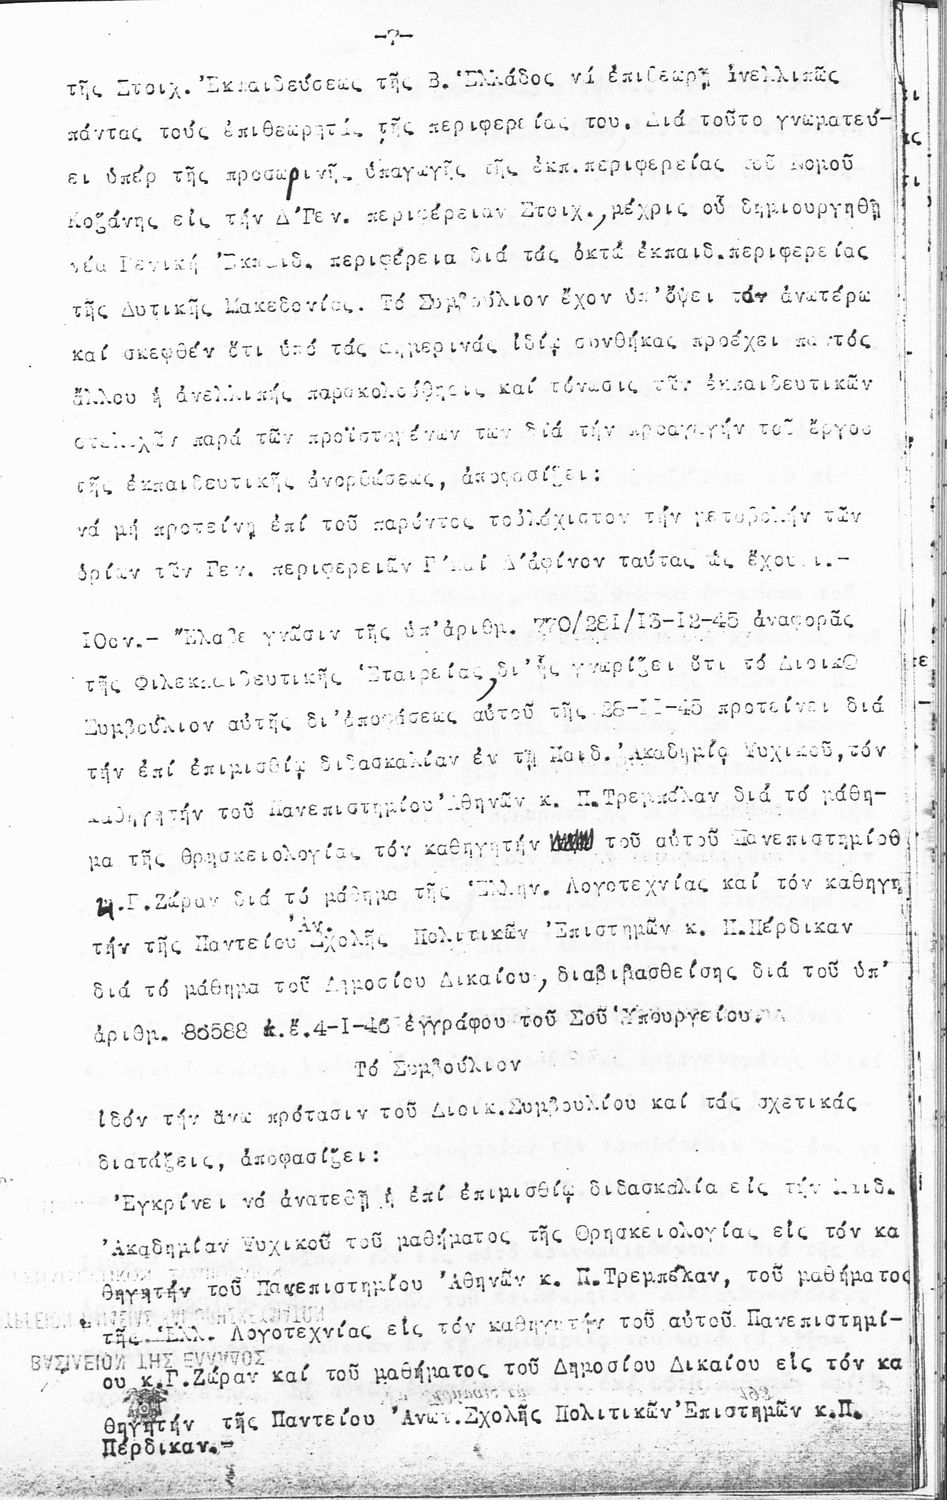 -7-
τῆς Στοιχ. Ἐκπαιδεύσεως τῆς Β. Ἑλλάδος νά ἐπιθεωρῇ ἀνελλιπῶς
πάντας τούς ἐπιθεωρητάς τῆς περιφερείας του. Διά τοῦτο γνωματεύ-
ει ὑπέρ τῆς προσωρινῆς ὑπαγωγῆς τῆς ἐκπ.περιφερείας τοῦ Νομοῦ
Κοζάνης εἰς τήν Δ΄Γεν. περιφέρειαν Στοιχ., μέχρις οὗ δημιουργηθῇ
νέα Γενική Ἐκπαιδ. περιφέρεια διά τάς ὀκτώ ἐκπαιδ.περιφερείας
τῆς Δυτικῆς Μακεδονίας. Τό Συμβούλιον ἔχον ὑπ'ὄψει τάν ἀνωτέρω
καί σκεφθέν ὅτι ὑπό τάς σημερινάς ἰδίᾳ συνθήκας προέχει παντός
ἄλλου ἡ ἀνελλιπής παρακολούθησις καί τόνωσις τῶν ἐκπαιδευτικῶν
στελεχῶν παρά τῶν προϊσταμένων των διά τήν προαγωγήν τοῦ ἔργου
τῆς ἐκπαιδευτικῆς ἀνορθώσεως, ἀποφασίζει:
νά μή προτείνῃ ἐπί τοῦ παρόντος τοὐλάχιστον τήν μεταβολήν τῶν
ὁρίων τῶν Γεν. περιφερειῶν Γ΄καί Δ΄ἀφίνον ταύτας ὡς ἔχουσι.-
10ον.- Ἔλαβε γνῶσιν τῆς ὑπ'ἀριθμ. 770/281/13-12-45 ἀναφορᾶς
τῆς Φιλεκπαιδευτικῆς Ἑταιρείας, δι'ἧς γνωρίζει ὅτι τό Διοικ.
Συμβούλιον αὐτῆς δι'ἀποφάσεως αὐτοῦ τῆς 28-11-45 προτείνει διά
τήν ἐπί ἐπιμισθίῳ διδασκαλίαν ἐν τῇ Παιδ. Ἀκαδημίᾳ Ψυχικοῦ, τόν
καθηγητήν τοῦ Πανεπιστημίου Ἀθηνῶν κ. Π.Τρεμπέλαν διά τό μάθη-
μα τῆς θρησκειολογίας τόν καθηγητήν τοῦ αὐτοῦ Πανεπιστημίου
κ.Γ.Ζώραν διά τό μάθημα τῆς Ἑλλην. Λογοτεχνίας καί τόν καθηγη
τήν τῆς Παντείου Ἀν. Σχολῆς Πολιτικῶν Ἐπιστημῶν κ. Π.Πέρδικαν
διά τό μάθημα τοῦ Δημοσίου Δικαίου, διαβιβασθείσης διά τοῦ ὑπ'
ἀριθμ. 86588 ἀ.ἔ.4-1-46 ἐγγράφου τοῦ Σοῦ Ὑπουργείου.
Τό Συμβούλιον
ἰδόν τήν ἄνω πρότασιν τοῦ Διοικ.Συμβουλίου καί τάς σχετικάς
διατάξεις, ἀποφασίζει:
Ἐγκρίνει νά ἀνατεθῇ ἡ ἐπί ἐπιμισθίῳ διδασκαλία εἰς τήν Παιδ.
Ἀκαδημίαν Ψυχικοῦ τοῦ μαθήματος τῆς Θρησκειολογίας εἰς τόν κα
θηγητήν τοῦ Πανεπιστημίου Ἀθηνῶν κ. Π.Τρεμπέλαν, τοῦ μαθήματος
τῆς Ἑλλ. Λογοτεχνίας εἰς τόν καθηγητήν τοῦ αὐτοῦ Πανεπιστημί-
ου κ.Γ.Ζώραν καί τοῦ μαθήματος τοῦ Δημοσίου Δικαίου εἰς τόν κα
θηγητήν τῆς Παντείου Ἀνωτ.Σχολῆς Πολιτικῶν Ἐπιστημῶν κ.Π.
Πέρδικαν.-